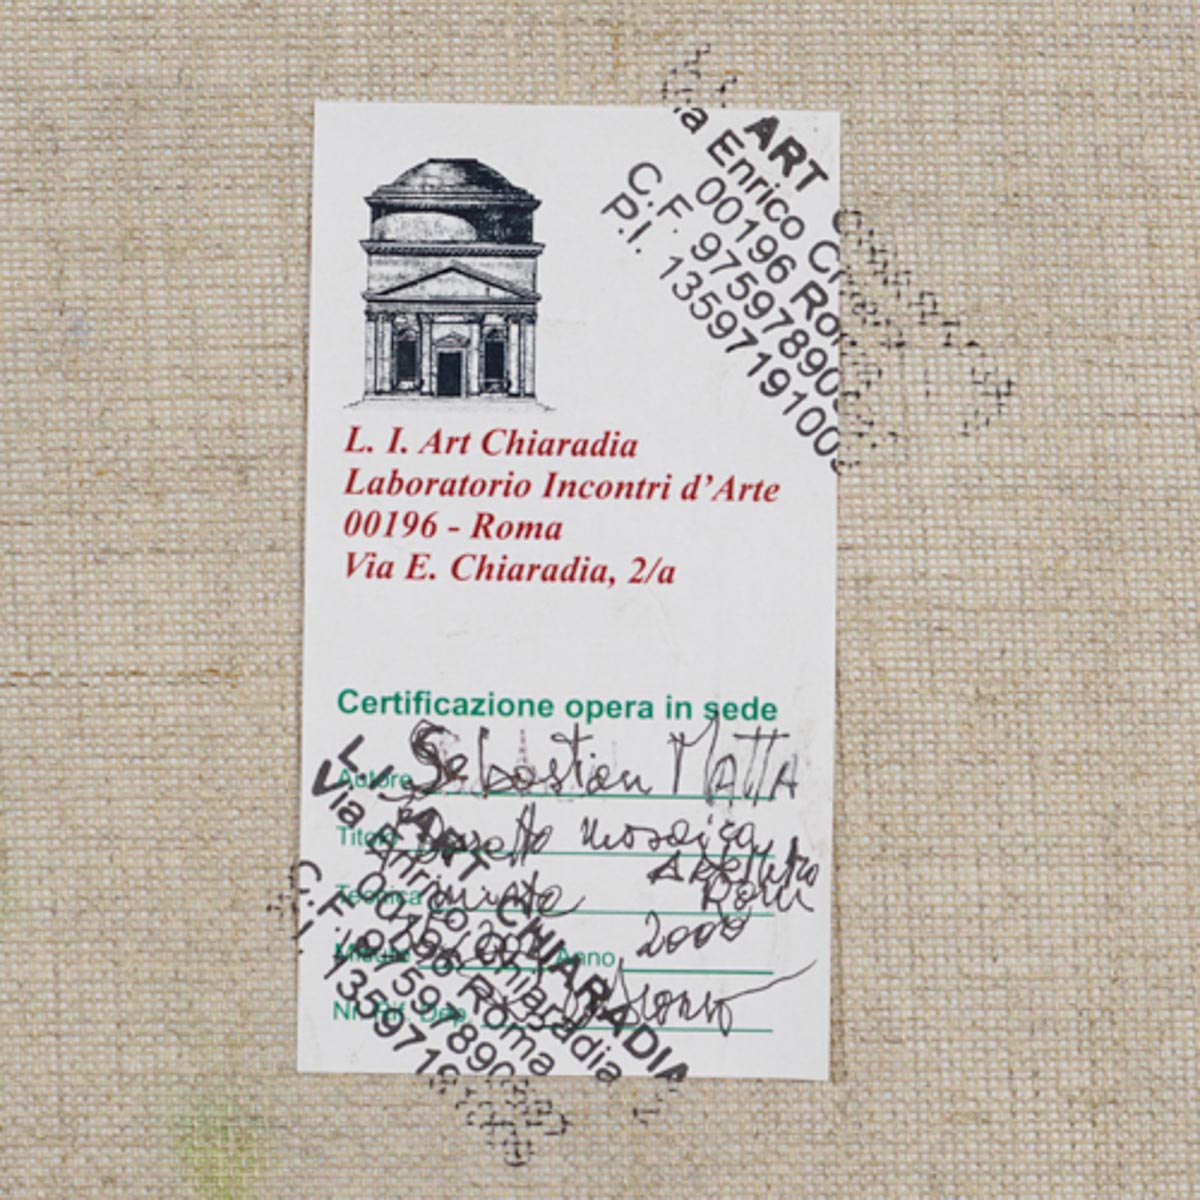 ART
Via Enrico Ch
00196 Roma
C.F. 9759789058
P.I. 13597191003
L. I. Art Chiaradia
Laboratorio Incontri d'Arte
00196 - Roma
Via E. Chiaradia, 2/a
Certificazione opera in sede
Autore Sebastian MATTA
Titolo mosaico
Tecnica mista Roma
Misure Anno 2000
Nr. Rif. Dep.
L.I. ART CHIARADIA
Via Enrico Chiaradia
00196 Roma
C.F. 97597890
P.I. 1359719